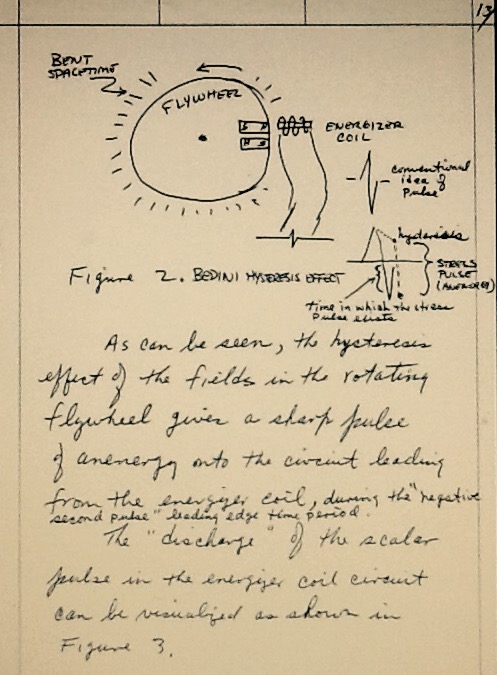 13
BENT
SPACETIME
FLYWHEEL
S N
N S
ENERGIZER
COIL
conventional
idea of
Pulse
hysteresis
STRESS
PULSE
(ANENERGY)
time in which the stress
Pulse exists
Figure 2. BEDINI HYSTERESIS EFFECT
As can be seen, the hysteresis
effect of the fields in the rotating
flywheel gives a sharp pulse
of anenergy onto the circuit leading
from the energizer coil, during the "negative
second pulse" leading edge time period.
The "discharge" of the scalar
pulse in the energizer coil circuit
can be visualized as shown in
Figure 3.